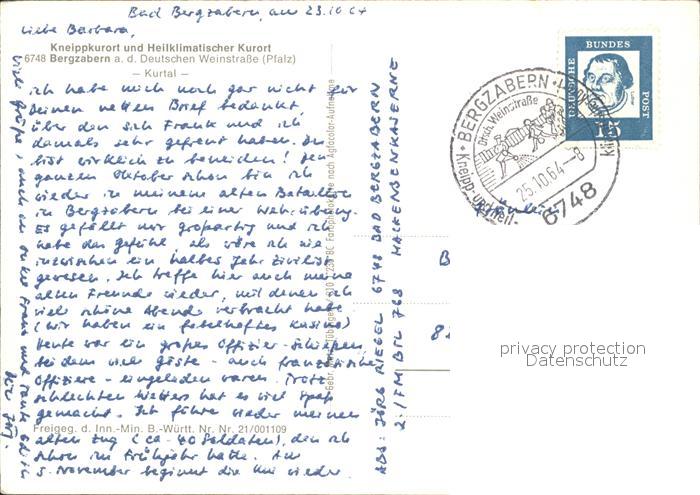 Bad Bergzabern, am 23.10.64
Liebe Barbara,
Kneippkurort und Heilklimatischer Kurort
6748 Bergzabern a. d. Deutschen Weinstraße (Pfalz)
— Kurtal —
ich habe mich noch gar nicht für
Deinen netten Brief bedankt,
über den sich Frank und ich
damals sehr gefreut haben. Du
bist wirklich zu beneiden! Den
ganzen Oktober schon bin ich
wieder in meinem alten Bataillon
in Bergzabern bei einer Wehrübung.
Es gefällt mir großartig und ich
habe das Gefühl, als wäre ich nie
inzwischen ein halbes Jahr Zivilist
gewesen. Ich treffe hier auch meine
alten Freunde wieder, mit denen ich
viele schöne Abende verbracht habe
(wir haben ein fabelhaftes Kasino)
Heute war ein großes Offizier-Schießen,
bei dem viele Gäste - auch französische
Offiziere - eingeladen waren. Trotz
schlechten Wetters hat es viel Spaß
gemacht. Ich führe wieder meinen
alten Zug (ca. 40 Soldaten), den ich
schon im Frühjahr hatte. Am
5. November beginnt die Uni wieder.
Viele Grüße, auch an Onkel Franz und Tante Edith
Dein Jörg.
Freigeg. d. Inn.-Min. B.-Württ. Nr. Nr. 21/001109
Farbphotokarte nach Agfacolor-Aufnahme
ABS: JÖRG RIEGEL 6748 BAD BERGZABERN
2./FM BTL 768 MACKENSENKASERNE
DEUTSCHE BUNDESPOST
Luther
15
BERGZABERN
Dtsch. Weinstraße
25.10.64-8
6748
Fräulein
B
8
privacy protection
Datenschutz